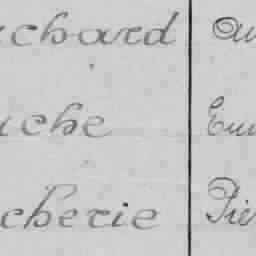 chard Au
che Eu
cherie Pie